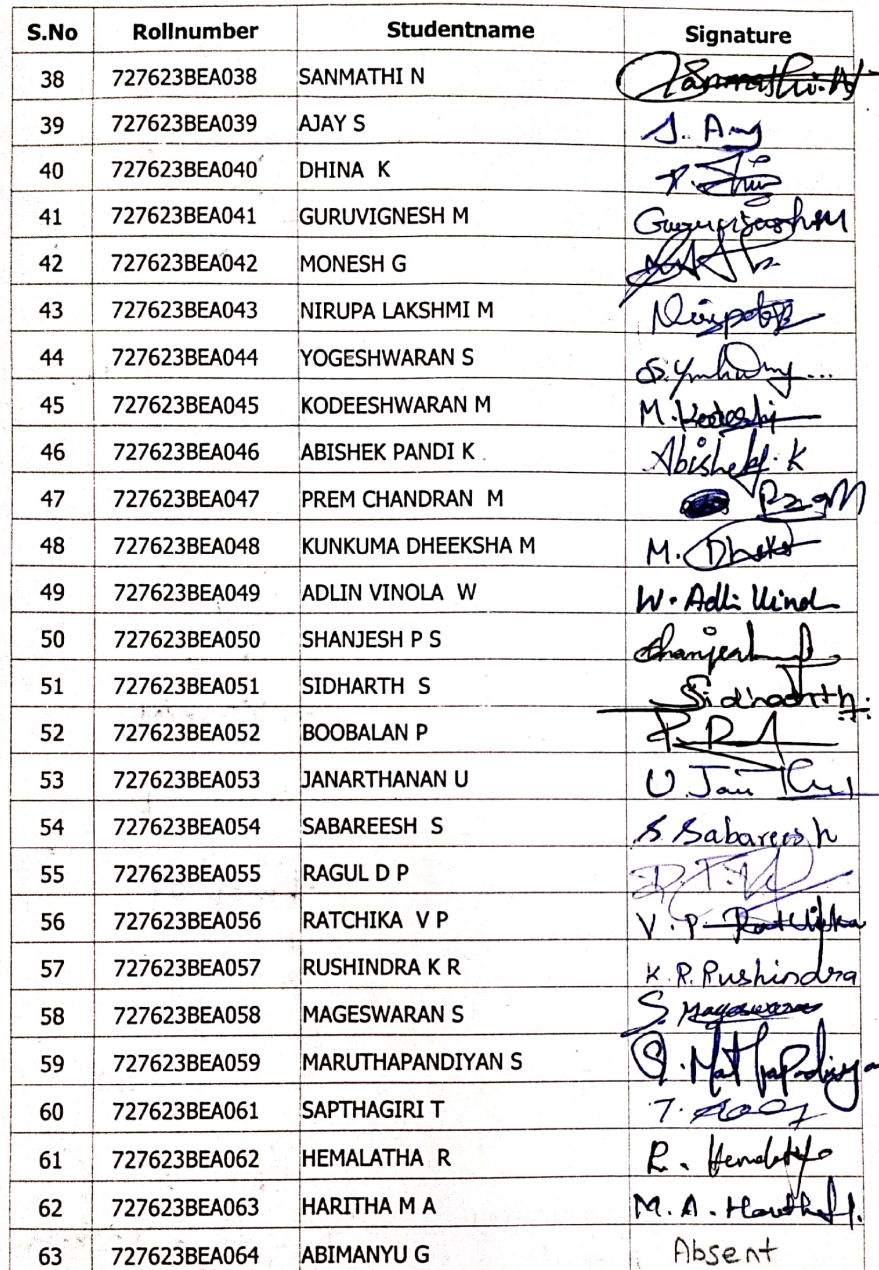 S.No Rollnumber Studentname Signature
38 727623BEA038 SANMATHI N Sanmathi.N
39 727623BEA039 AJAY S S.
40 727623BEA040 DHINA K
41 727623BEA041 GURUVIGNESH M
42 727623BEA042 MONESH G
43 727623BEA043 NIRUPA LAKSHMI M
44 727623BEA044 YOGESHWARAN S
45 727623BEA045 KODEESHWARAN M M.
46 727623BEA046 ABISHEK PANDI K Abishek. K
47 727623BEA047 PREM CHANDRAN M
48 727623BEA048 KUNKUMA DHEEKSHA M M.
49 727623BEA049 ADLIN VINOLA W W. Adli
50 727623BEA050 SHANJESH P S
51 727623BEA051 SIDHARTH S Sidhaarth.
52 727623BEA052 BOOBALAN P
53 727623BEA053 JANARTHANAN U U.
54 727623BEA054 SABAREESH S S. Sabareesh
55 727623BEA055 RAGUL D P
56 727623BEA056 RATCHIKA V P V. P. Ratchika
57 727623BEA057 RUSHINDRA K R K. R. Rushindra
58 727623BEA058 MAGESWARAN S S. Mageswaran
59 727623BEA059 MARUTHAPANDIYAN S
60 727623BEA061 SAPTHAGIRI T T.
61 727623BEA062 HEMALATHA R R.
62 727623BEA063 HARITHA M A M. A.
63 727623BEA064 ABIMANYU G Absent